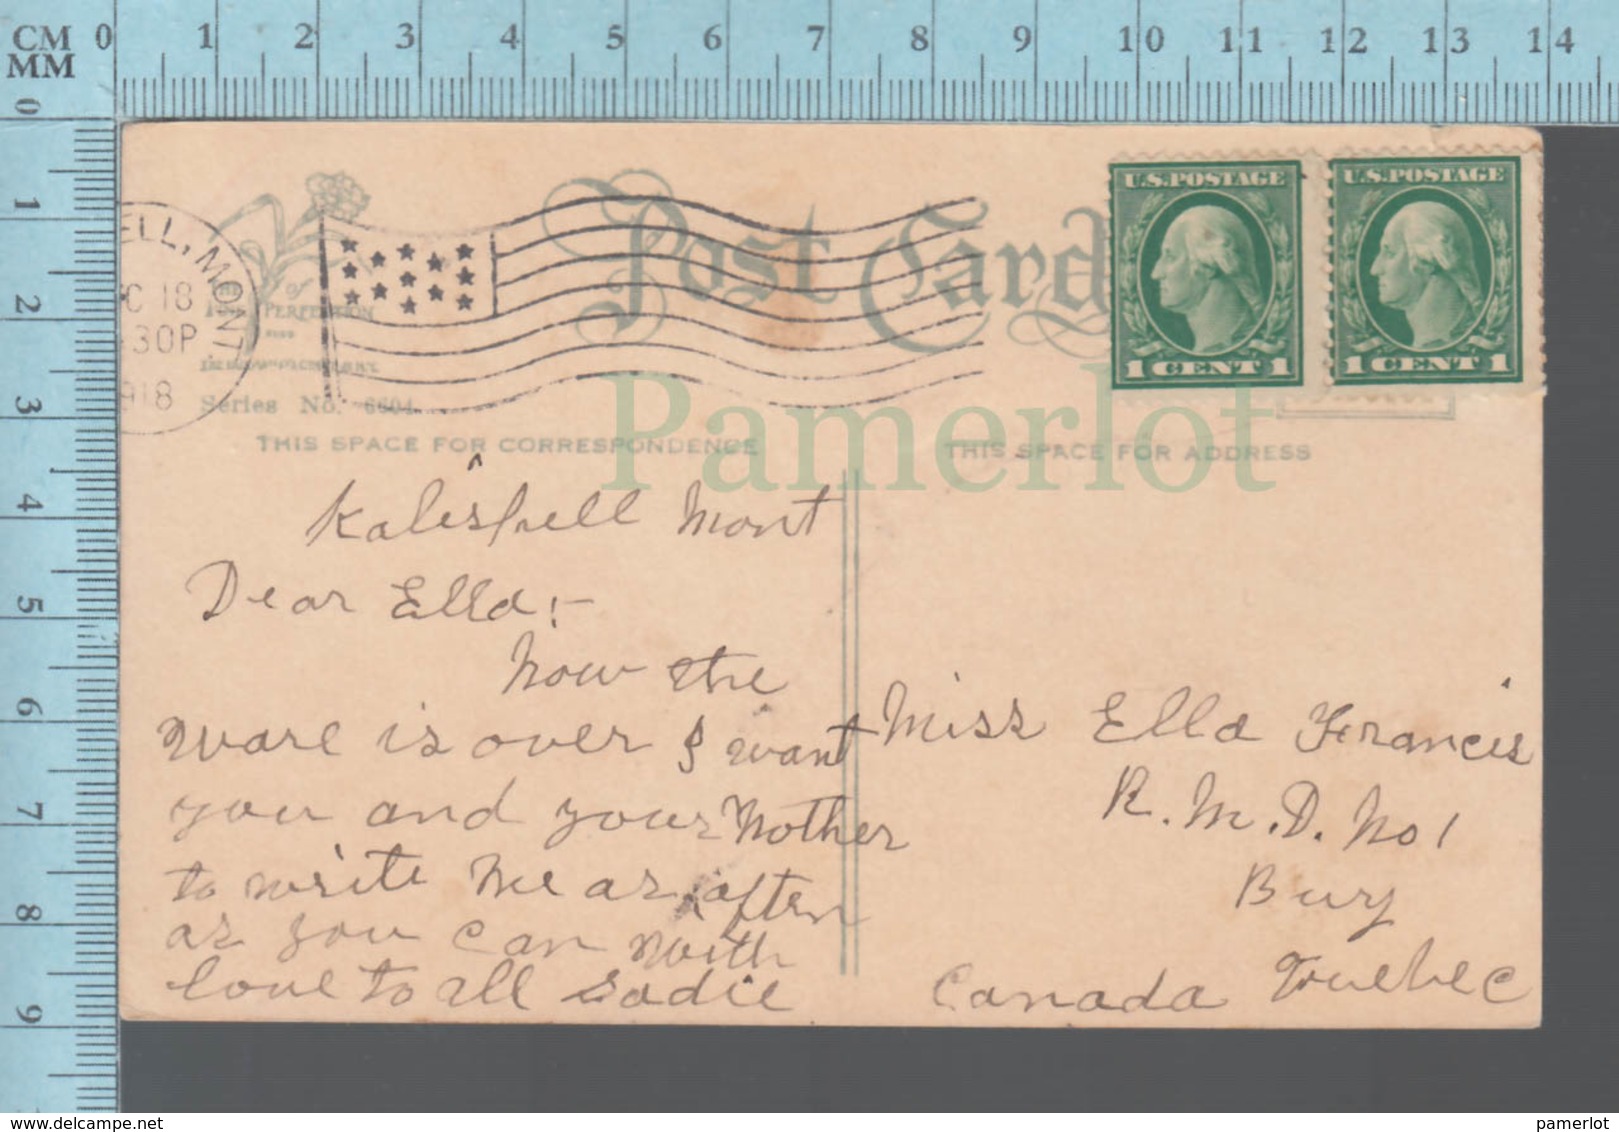 CM 0 1 2 3 4 5 6 7 8 9 10 11 12 13 14
MM
0 1 2 3 4 5 6 7 8 9
ELL, MONT
C 18
30P
918
Post Card
U.S. POSTAGE
1 CENT 1
U.S. POSTAGE
1 CENT 1
of
PERFECTION
Series No. 6604
THIS SPACE FOR CORRESPONDENCE
THIS SPACE FOR ADDRESS
Pamerlot
Kalispell Mont
Dear Ella:-
Now the
ware is over I want
you and your Mother
to write me as often
as you can with
love to all Sadie
Miss Ella Francis
R.M.D. No 1
Bury
Canada Quebec
delcampe.net
pamerlot